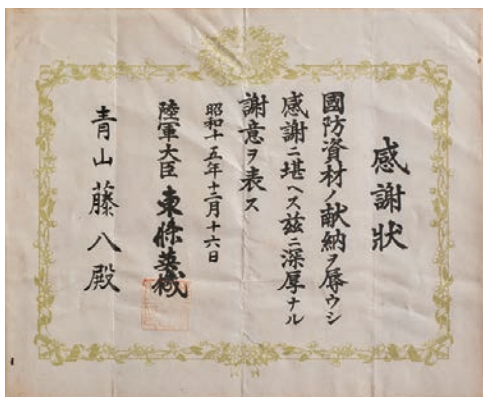 感謝狀
國防資材ノ献納ヲ辱ウシ
感謝ニ堪ヘス茲ニ深厚ナル
謝意ヲ表ス
昭和十五年十二月十六日
陸軍大臣 東條英機
青山藤八殿